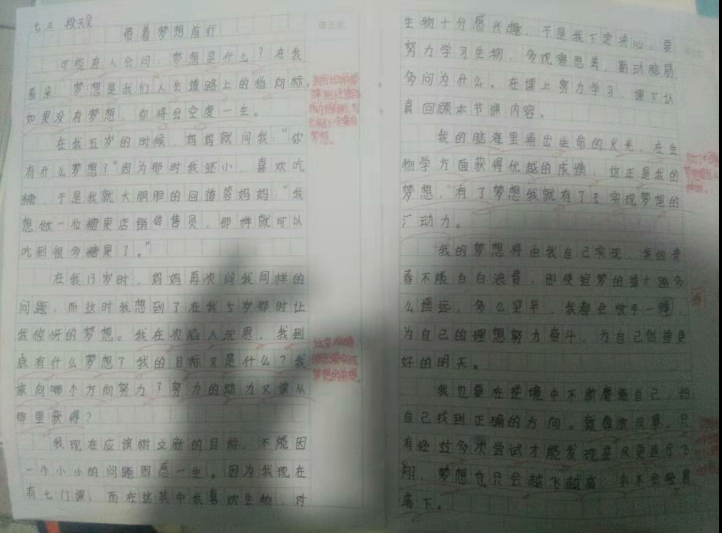 带着梦想前行
可能有人会问，梦想是什么？在我
看来，梦想是我们人生道路上的指向标，
如果没有梦想，你将会空度一生。
在我五岁的时候，妈妈就问我：“你
有什么梦想？”因为那时我还小，喜欢吃
糖，于是我就大胆胆的回答答妈妈：“我
想做一位糖果店销售售员，那样就可以
吃到很多糖果了。”
在我13岁时，妈妈再次问我同样的
问题，而这时我想到了在我5岁那时让
我惊讶的梦想。我在次陷入沉思，我到
底有什么梦想？我的目标又是什么？我
该向哪个方向努力？努力的动力又该从
哪里获得？
我现在应该树立新的目标，不能因
一个小小的问题困惑一生。因为我现在
有七门课，而在这其中我喜欢生物，对
生物十分感兴趣，于是我下定决心，要
努力学习生物，多观察思考，勤动脑筋，
多问为什么。在课上努力学习，课下认
真回顾本节课内容。
我的脑海里涌出生命的火光，在生
物学方面获得优越的成绩，这正是我的
梦想，有了梦想我就有了了实现梦想的
动力。
我的梦想将由我自己实现，我的青
春不能白白浪费，即使追梦的道路多
么遥远，多么艰辛，我都会放手一搏，
为自己的理想努力奋斗，为自己创造更
好的明天。
我也要在逆境中不断磨练自己，给
自己找到正确的方向。就像放风筝，只
有经过多次尝试才能发现是风筝在飞
翔，梦想也只会越飞越高，永不会轻易
落下。